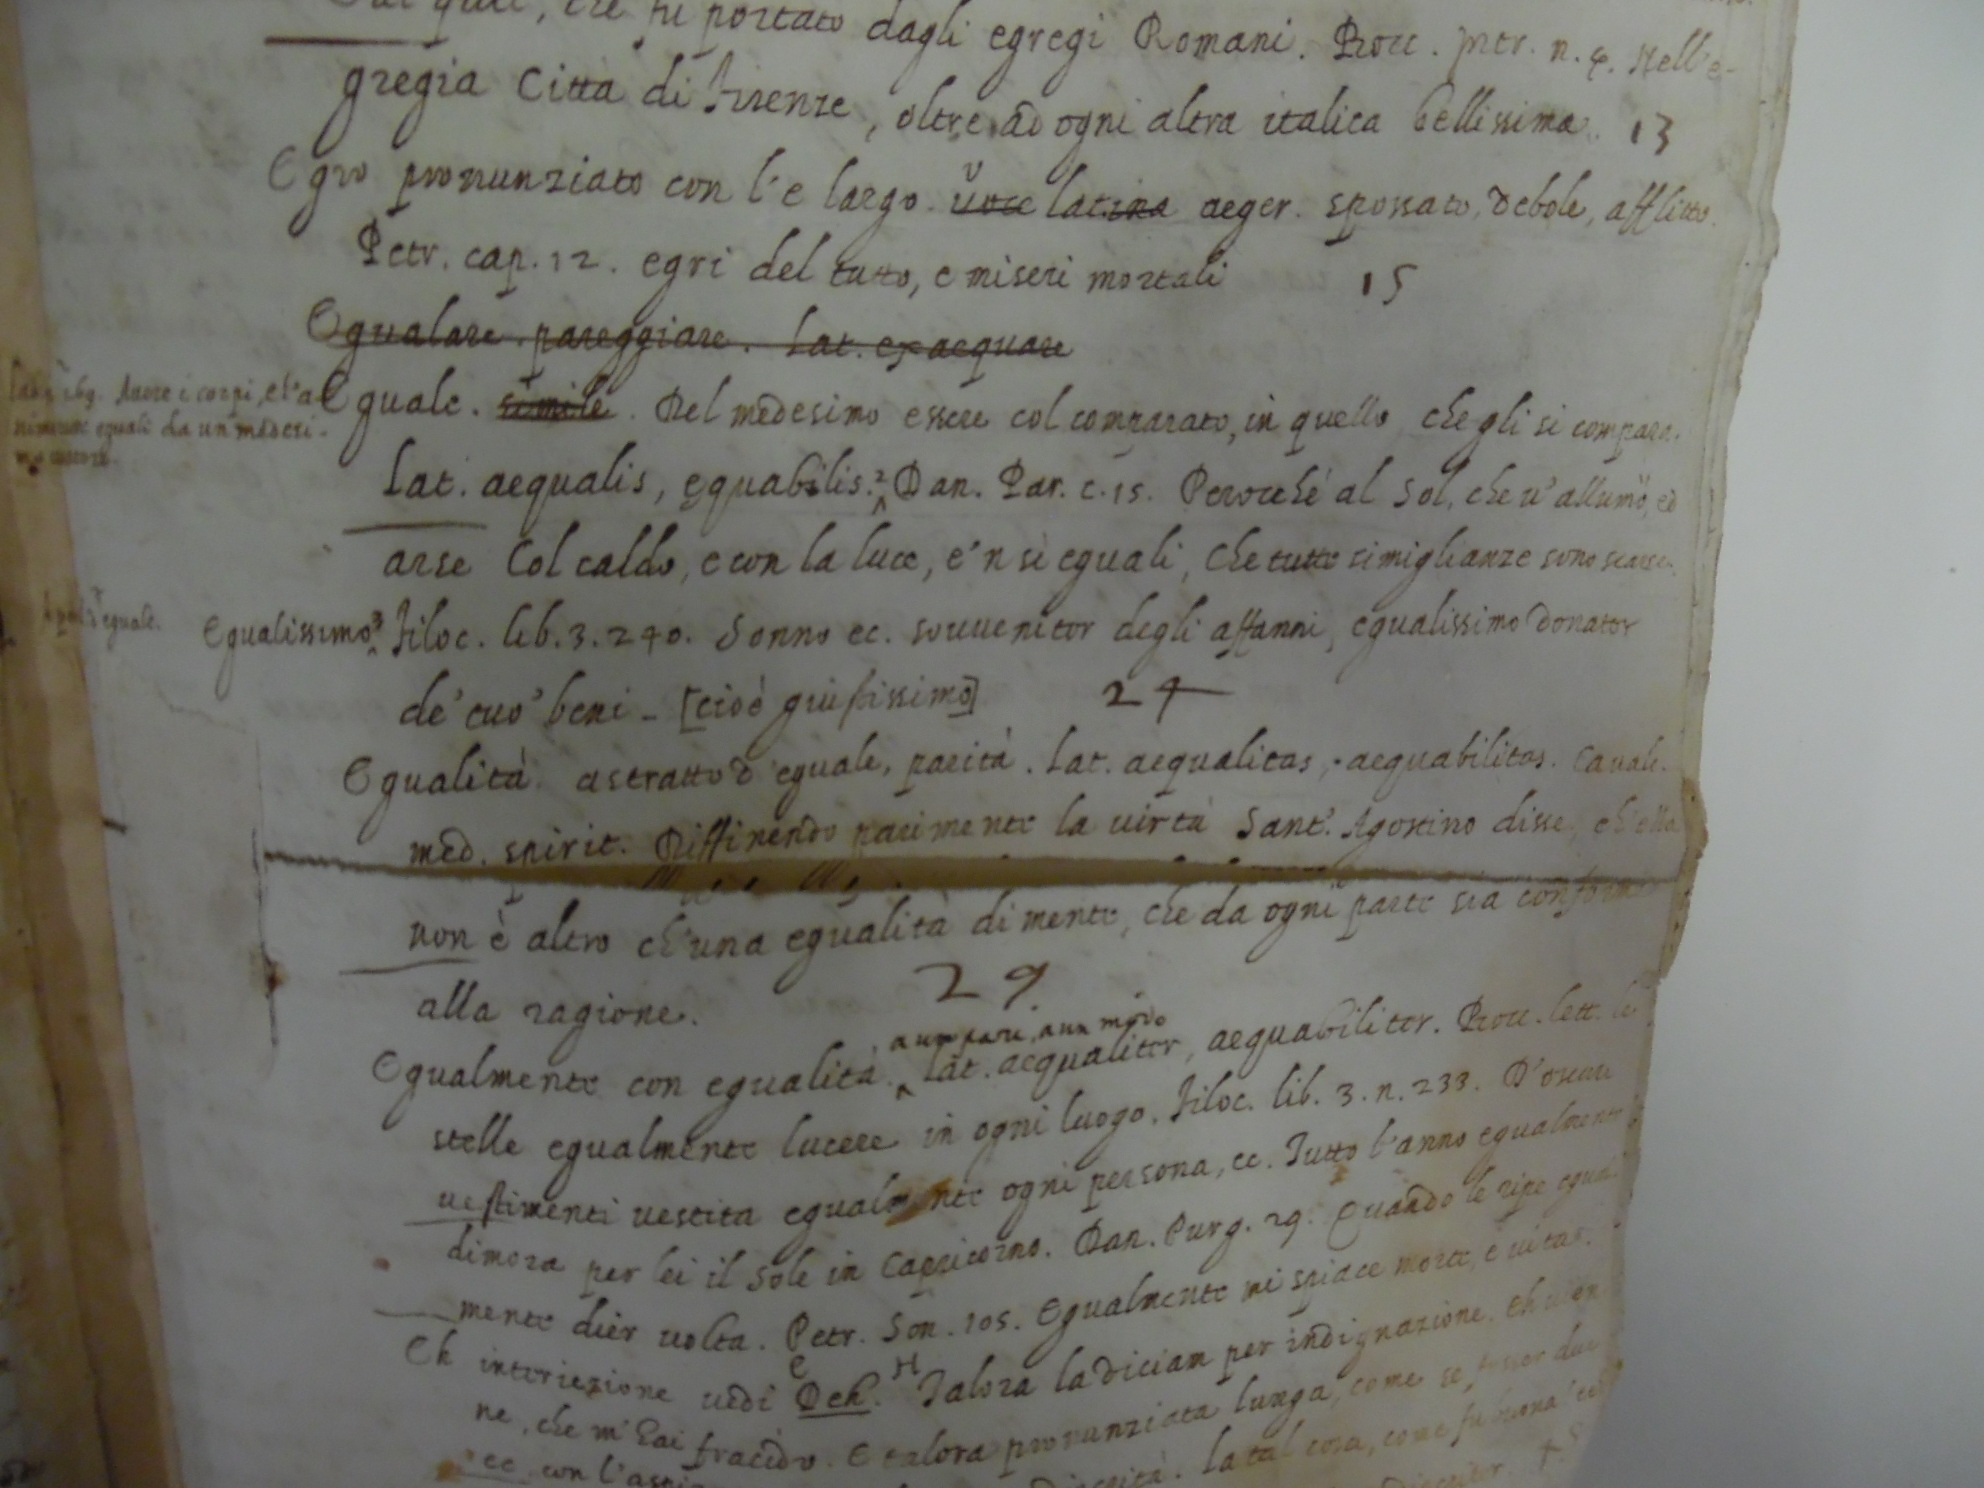 che fu portato dagli egregi Romani. Bocc. intr. n. 4. Nell'e-
gregia Città di Firenze, oltre ad ogni altra italica bellissima. 13
Egro pronunziato con l'e largo. voce latina aeger. spossato, debole, afflitto.
Petr. cap. 12. egri del tutto, e miseri mortali 15
Egualare. pareggiare. Lat. exaequare
Avere i corpi, e l'a-
nime eguali da un medesi-
Eguale. simile. Del medesimo essere col comparato, in quello che gli si compara.
Lat. aequalis, equabilis. 2 Dan. Par. c. 15. Perocché al Sol, che v'allumò, ed
arse Col caldo, e con la luce, e'n sì eguali, Che tutte simiglianze sono scarse.
eguale.
Egualissimo 3 Filoc. lib. 3. 240. Sonno ec. souuenitor degli affanni, egualissimo donator
de' suo' beni - [cioè giustissimo] 24
Egualità. astratto d'eguale, parità. Lat. aequalitas, aequabilitas. Cavalc.
med. spirit. Diffinendo parimente la uirtà Sant'. Agostino disse, ch'ella
non è altro ch'una egualità di mente, che da ogni parte sia conforme
alla ragione. 29
a un pari, a un modo
Egualmente con egualità. Lat. aequaliter, aequabiliter. Bocc. lett. le
stelle egualmente lucere in ogni luogo. Filoc. lib. 3. n. 233. D'oscuri
vestimenti vestita egualmente ogni persona, ec. Tutto l'anno egualmente
dimora per lei il Sole in Capricorno. Dan. Purg. 29. Quando le ripe egual-
mente dier volta. Petr. Son. 105. Egualmente mi spiace morte, e vita.
Eh interiezione vedi Deh. Talora la diciam per indignazione. Eh
ne, che m'hai fracido. E talora pronunziata lunga, come se fosser due
ec con l' la tal cosa, come fu buona